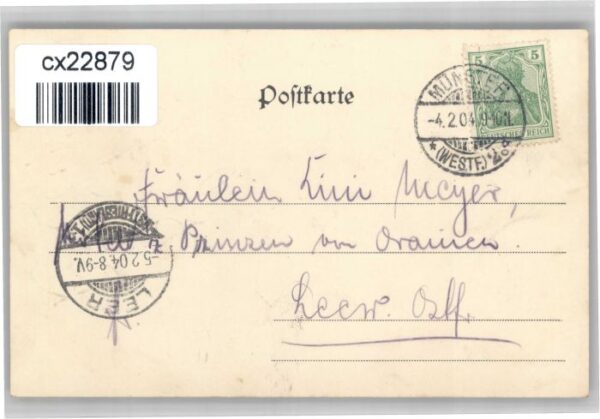 cx22879
Postkarte
5 5
DEUTSCHES REICH
MÜNSTER
-4.2.04.9-10N.
*(WESTF.)2a*
Fräulein Lini Meyer,
z. Prinzen von Oranien.
Leer. Ostfr.
LEER
-5.2.04.8-9V.
(OSTFRIESLAND)